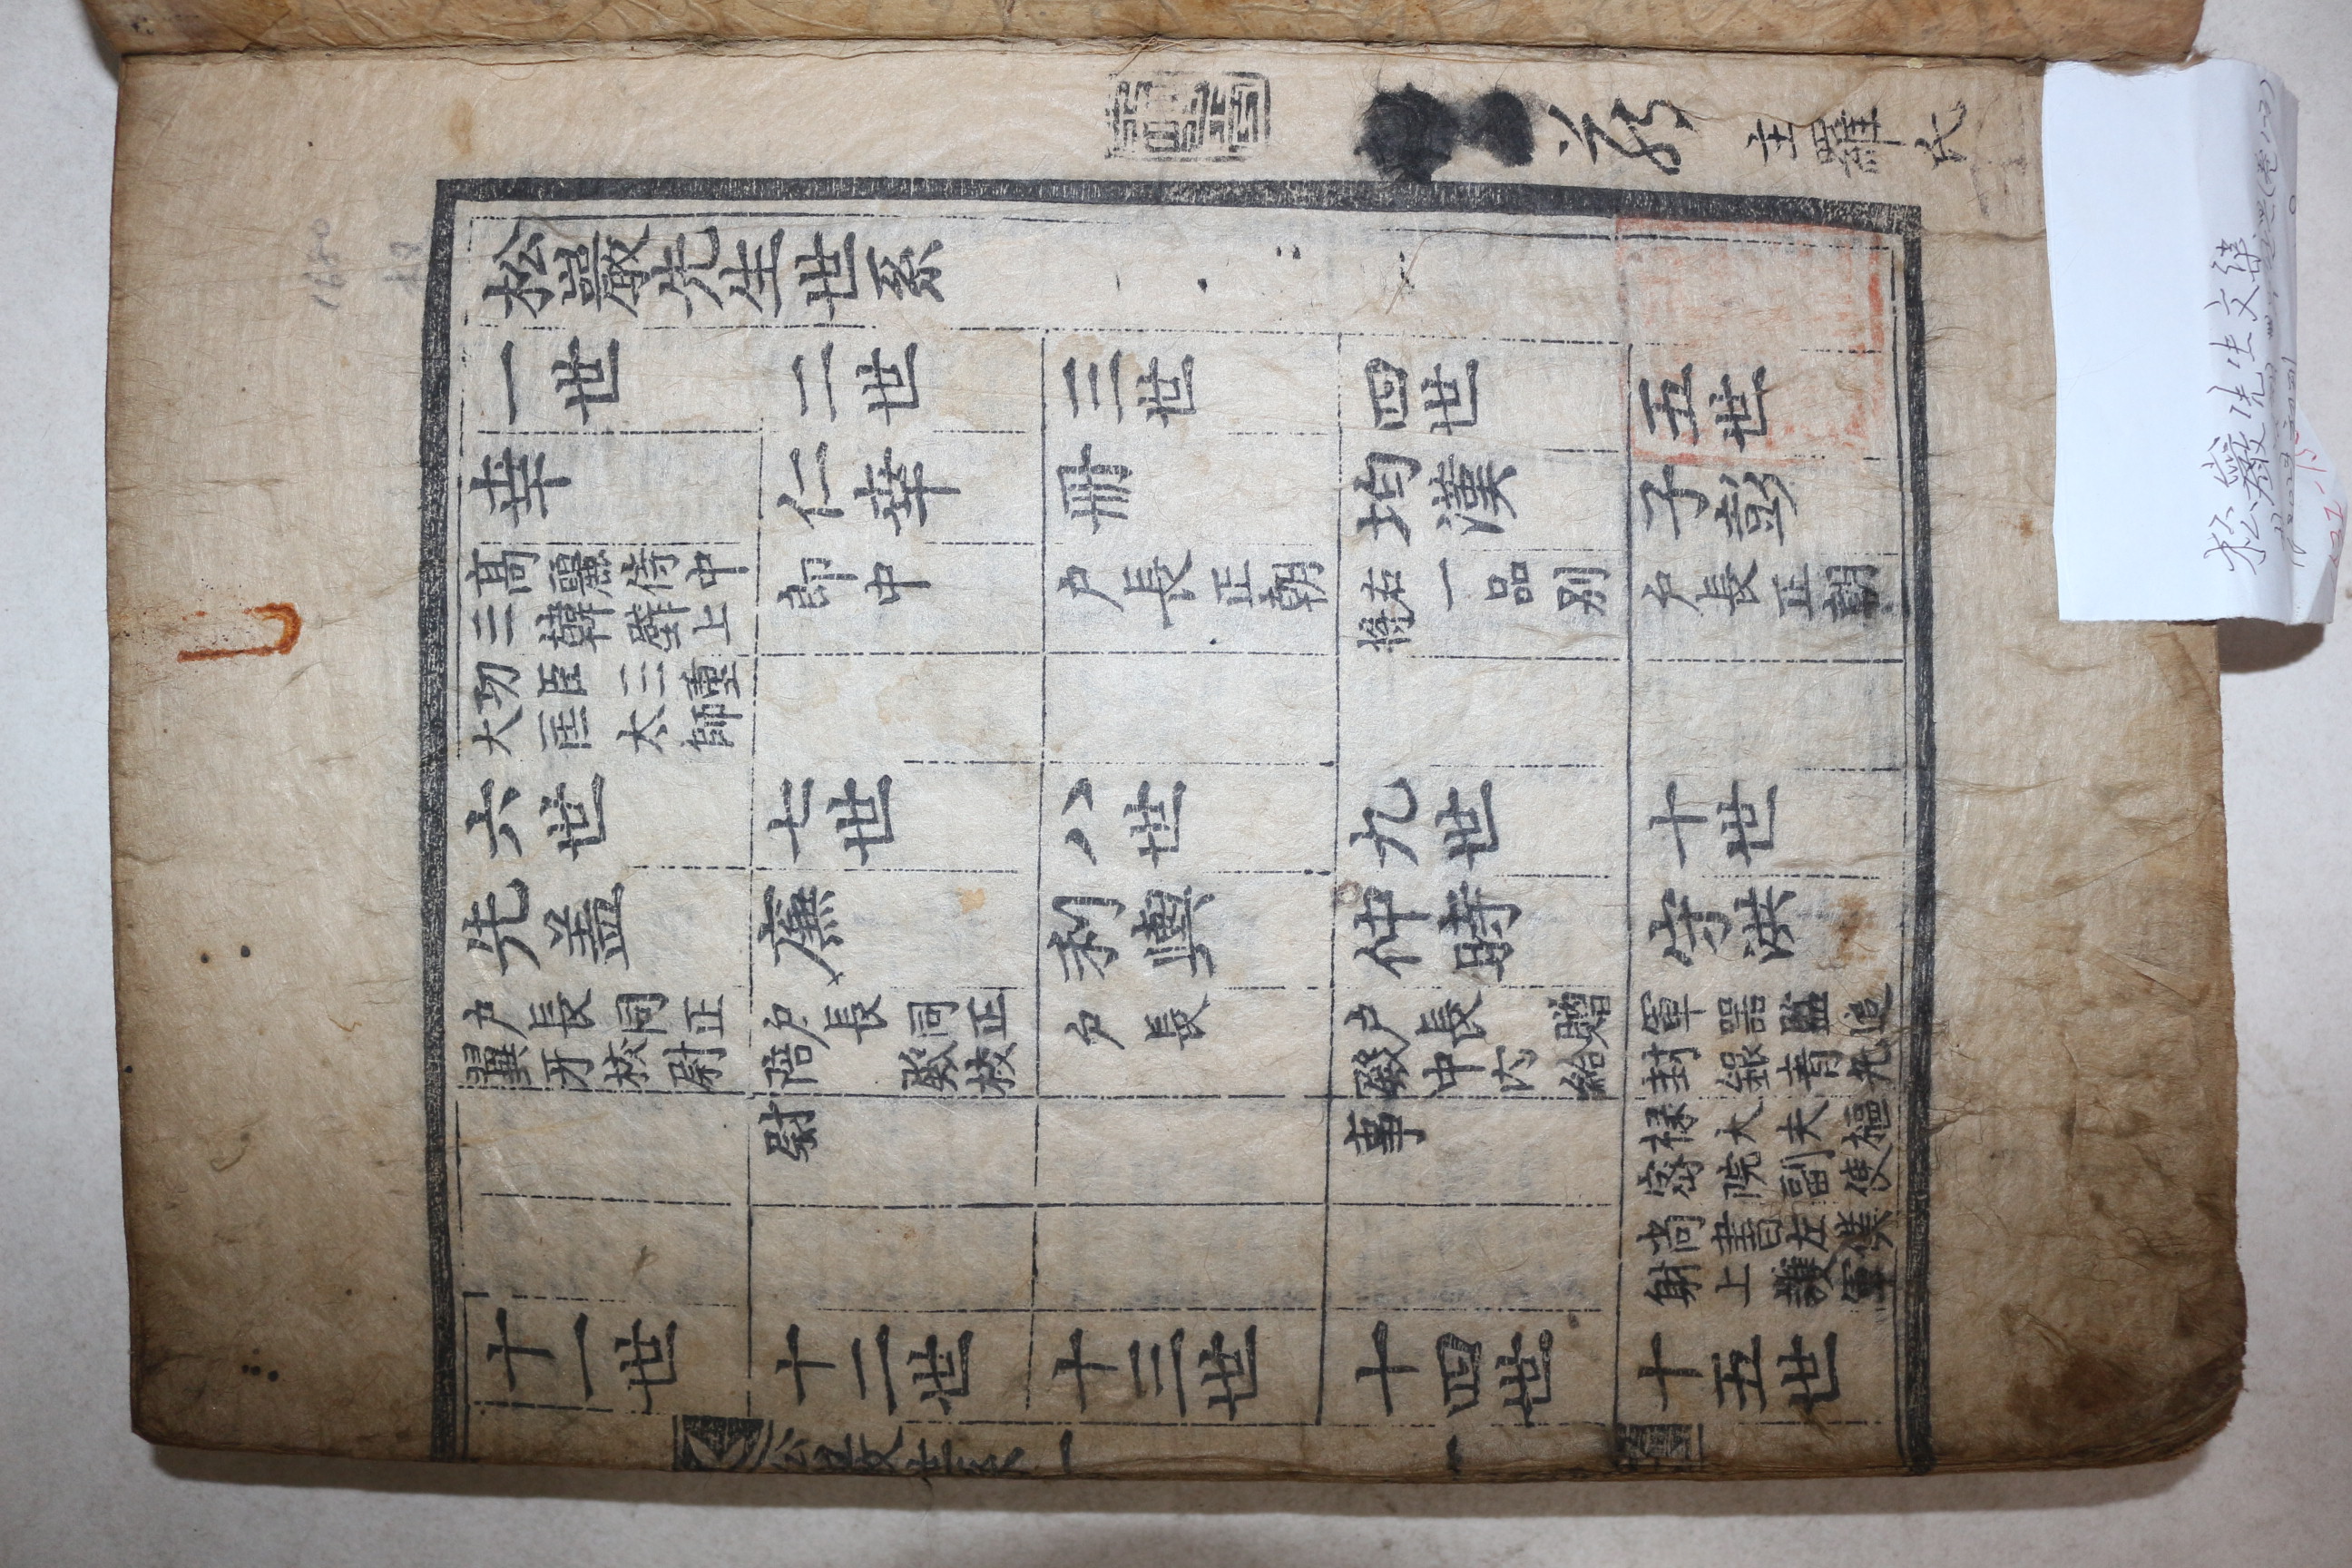 主羅氏
松巖先生世系
一世
二世
三世
四世
五世
幸
仁幸
冊
均漢
子彭
高麗侍中
三韓壁上
功臣三重
大匡太師
郎中
戶長正朝
右一品別
將
戶長正朝
六世
七世
八世
九世
十世
先盖
廉
利輿
仲時
守洪
戶長同正
翼牙校尉
戶長 同正
陪 戎校
尉
戶長
戶長 贈
殿中內給
事
軍器監追
封銀青光
祿大夫樞
密院副使
尚書左僕
射上護軍
十一世
十二世
十三世
十四世
十五世
松巖世系 一
松巖先生文集
1680